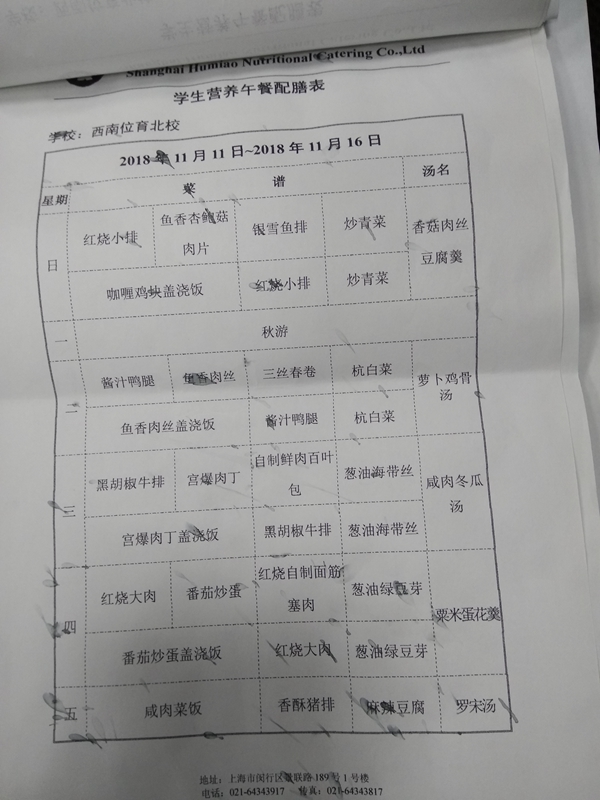 Shanghai Humiao Nutritional Catering Co.,Ltd
学生营养午餐配膳表
学校：西南位育北校
2018年11月11日~2018年11月16日
星期 菜 谱 汤名
日 红烧小排 鱼香杏鲍菇肉片 银雪鱼排 炒青菜 香菇肉丝豆腐羹
咖喱鸡块盖浇饭 红烧小排 炒青菜
一 秋游
二 酱汁鸭腿 鱼香肉丝 三丝春卷 杭白菜 萝卜鸡骨汤
鱼香肉丝盖浇饭 酱汁鸭腿 杭白菜
三 黑胡椒牛排 宫爆肉丁 自制鲜肉百叶包 葱油海带丝 咸肉冬瓜汤
宫爆肉丁盖浇饭 黑胡椒牛排 葱油海带丝
四 红烧大肉 番茄炒蛋 红烧自制面筋塞肉 葱油绿豆芽 粟米蛋花羹
番茄炒蛋盖浇饭 红烧大肉 葱油绿豆芽
五 咸肉菜饭 香酥猪排 麻辣豆腐 罗宋汤
地址：上海市闵行区联路189号1号楼
电话：021-64343917 传真：021-64343817